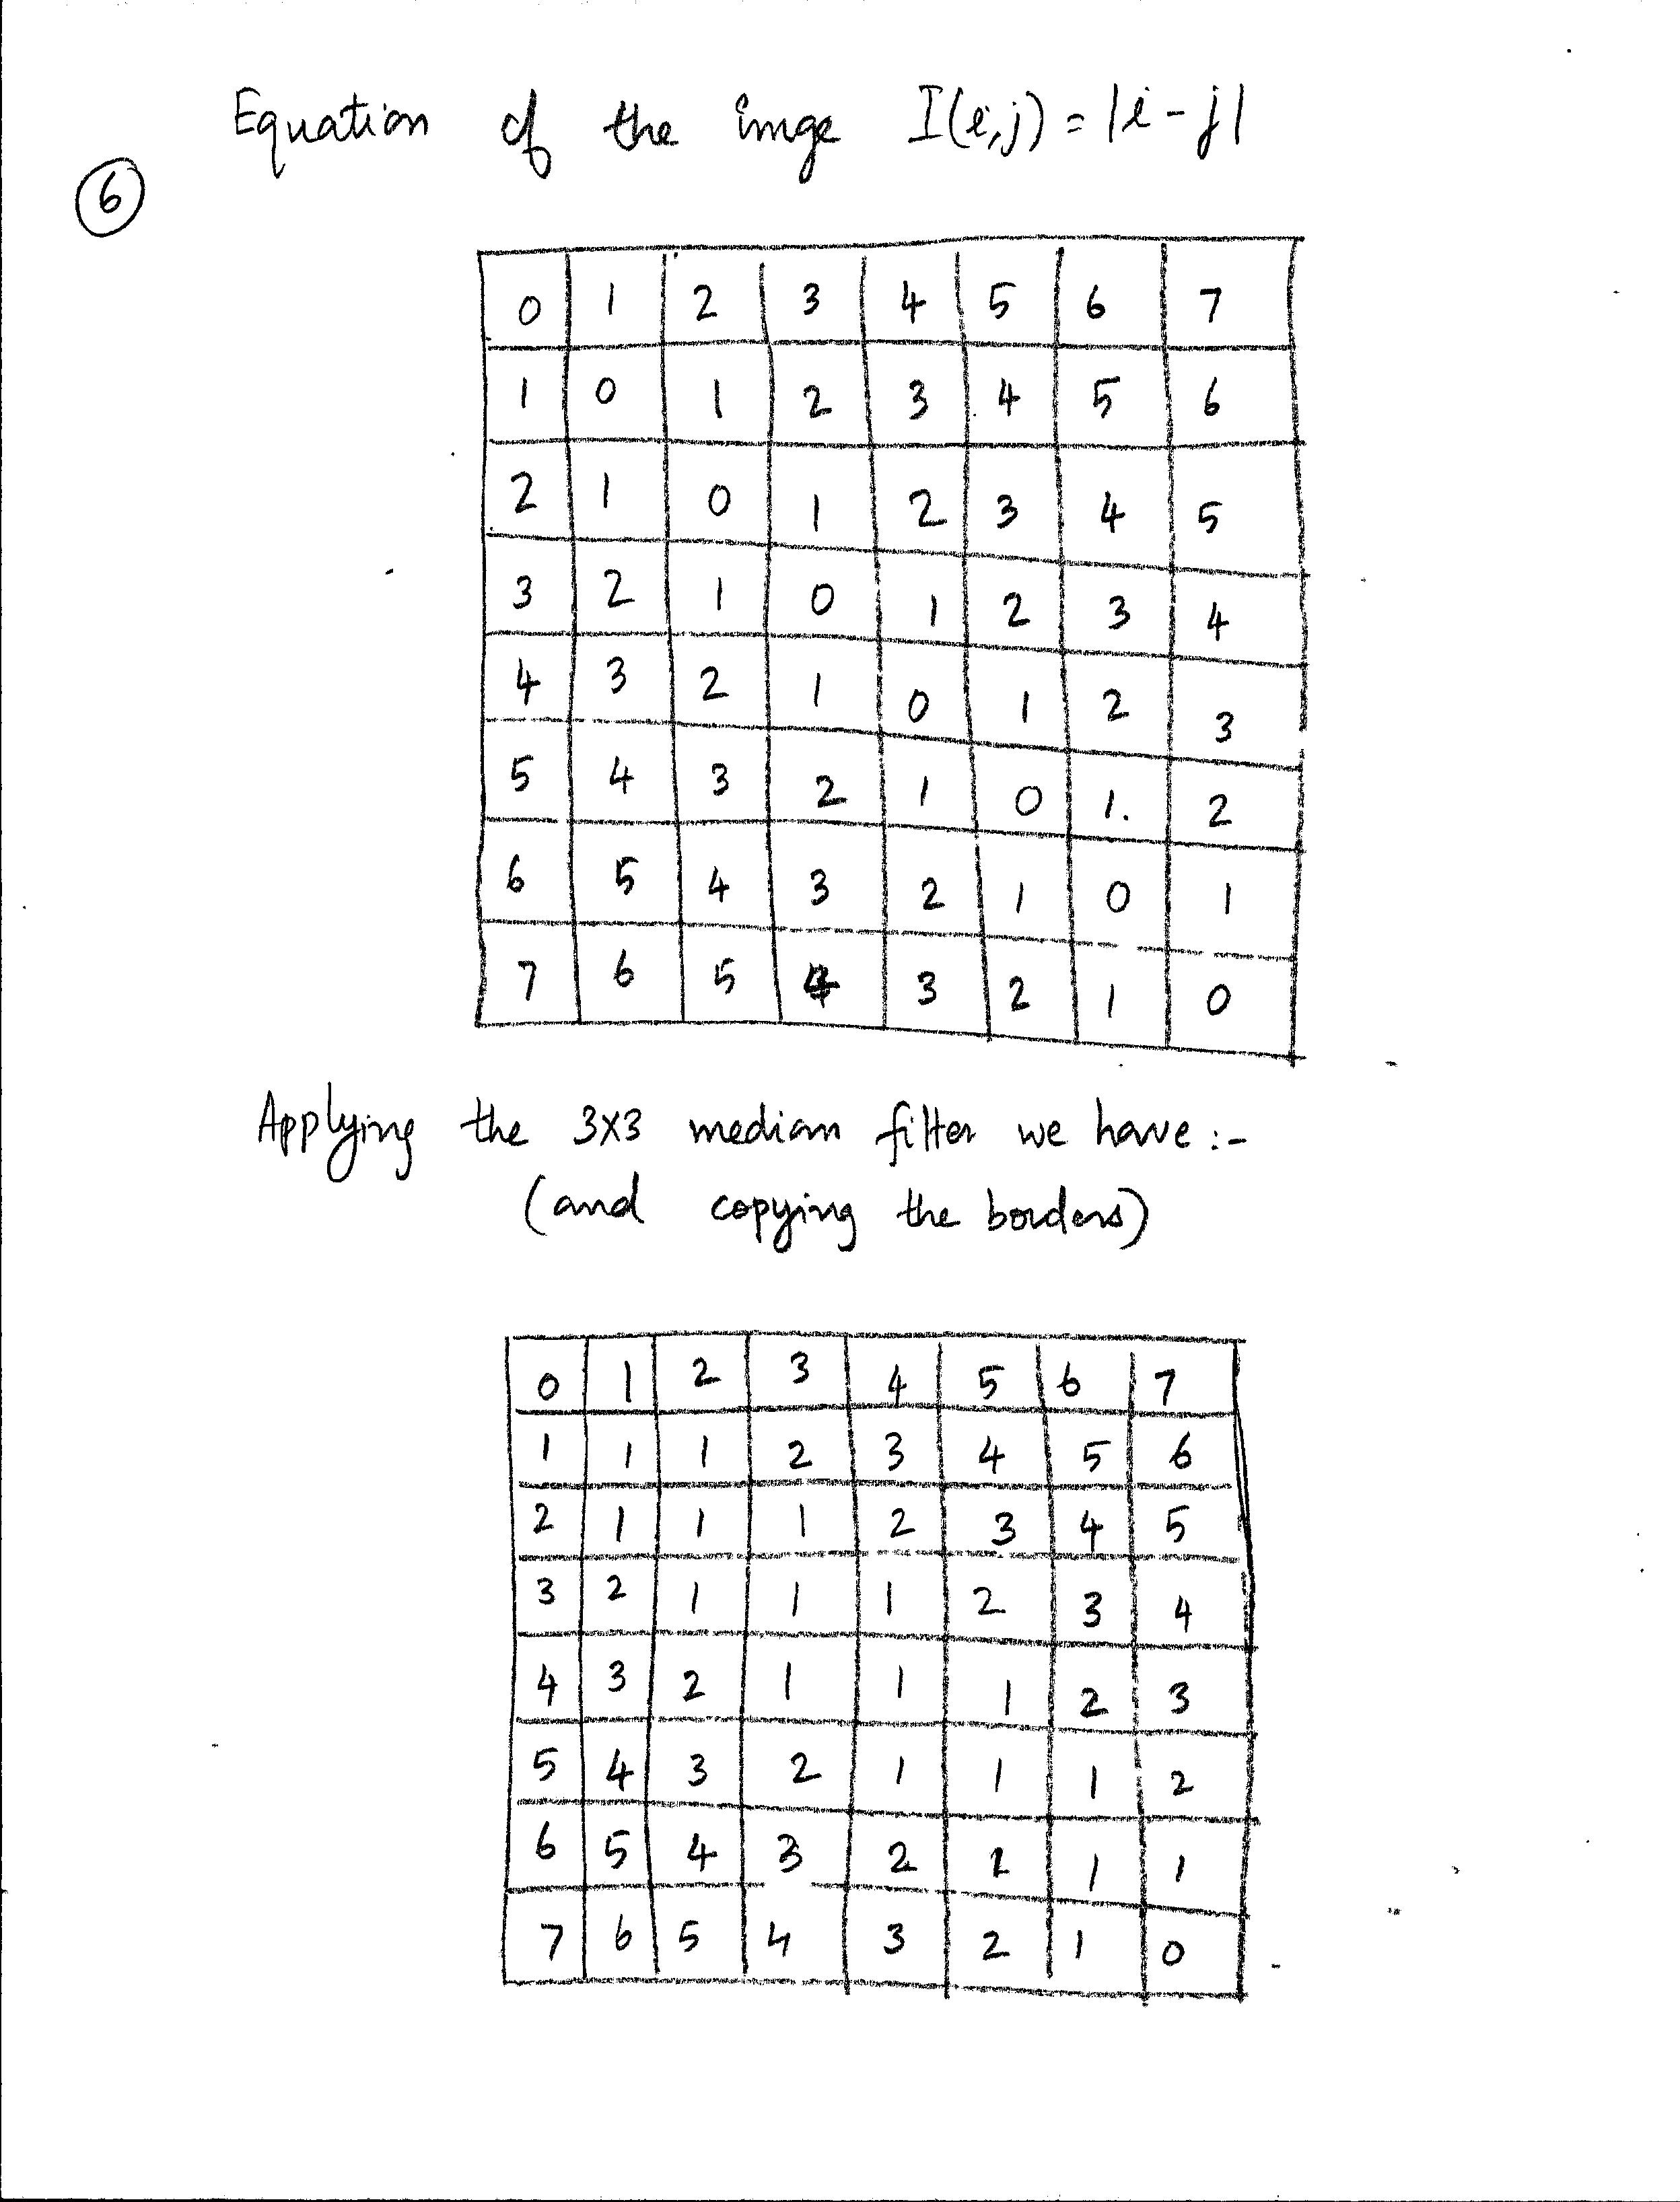 Equation of the imge I(i,j) = |i - j|
6
0 1 2 3 4 5 6 7
1 0 1 2 3 4 5 6
2 1 0 1 2 3 4 5
3 2 1 0 1 2 3 4
4 3 2 1 0 1 2 3
5 4 3 2 1 0 1. 2
6 5 4 3 2 1 0 1
7 6 5 4 3 2 1 0
Applying the 3x3 median filter we have :-
(and copying the borders)
0 1 2 3 4 5 6 7
1 1 1 2 3 4 5 6
2 1 1 1 2 3 4 5
3 2 1 1 1 2 3 4
4 3 2 1 1 1 2 3
5 4 3 2 1 1 1 2
6 5 4 3 2 1 1
7 6 5 4 3 2 1 0